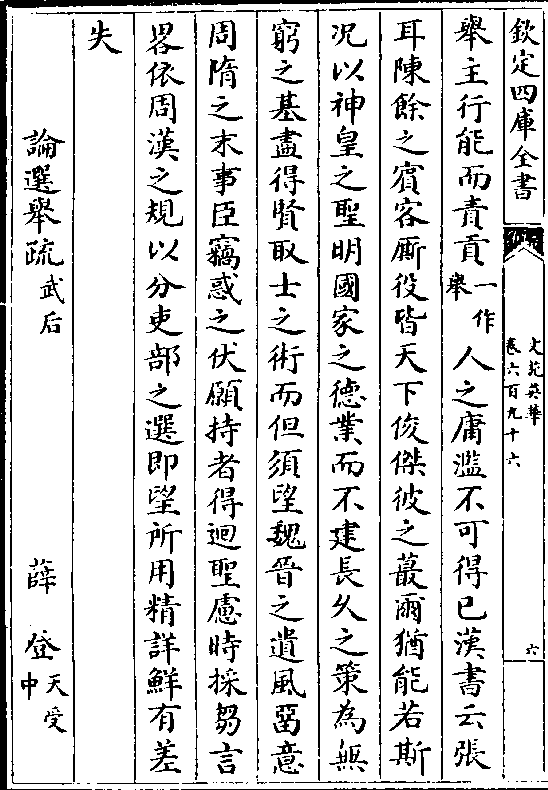 欽定四庫全書
文苑英華
卷六百九十六
六
舉主行能而責貢一作舉人之庸濫不可得已漢書云張
耳陳餘之賓客厮役皆天下俊傑彼之蕞爾猶能若斯
况以神皇之聖明國家之德業而不建長久之策為無
窮之基盡得賢取士之術而但須望魏晉之遺風留意
周隋之末事臣竊惑之伏願持者得迴聖慮時採芻言
畧依周漢之規以分吏部之選即望所用精詳鮮有差
失
論選舉疏武后 薛登天受中